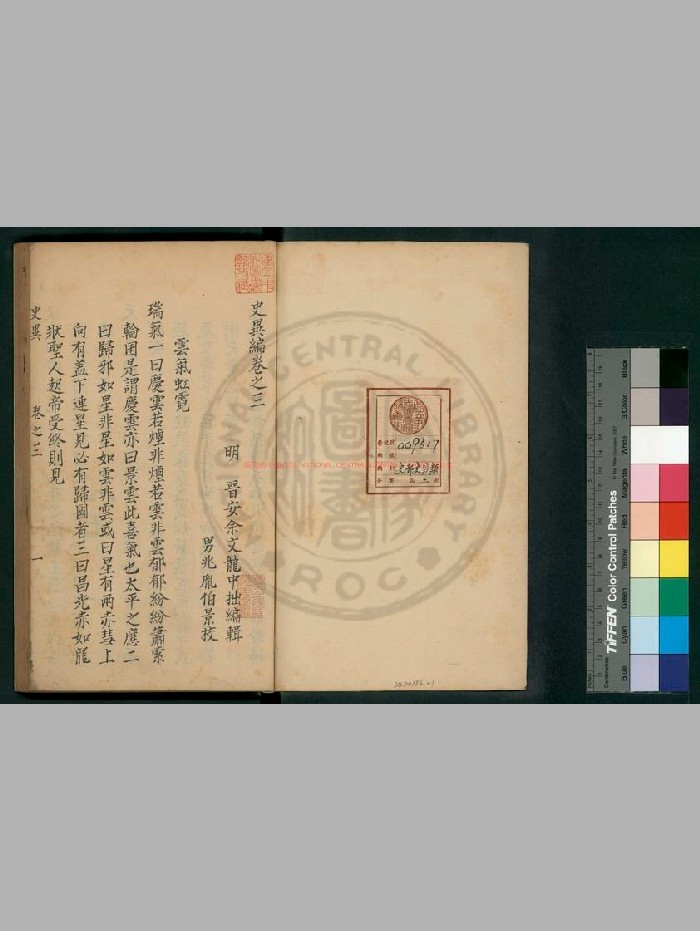 史異編卷之三
明 晉安余文龍中拙編輯
男兆胤伯景校
雲氣虹霓
瑞氣一曰慶雲若煙非煙若雲非雲郁郁紛紛蕭索
輪囷是謂慶雲亦曰景雲此喜氣也太平之應二
曰歸邪如星非星如雲非雲或曰星有兩赤彗上
向有蓋下連星見必有歸國者三曰昌光赤如龍
狀聖人起帝受終則見
史異 卷之三 一
NATIONAL CENTRAL LIBRARY
ROC
TIFFEN Color Control Patches
Blue
Cyan
Green
Yellow
Red
Magenta
White
3/Color
Black
Centimetres